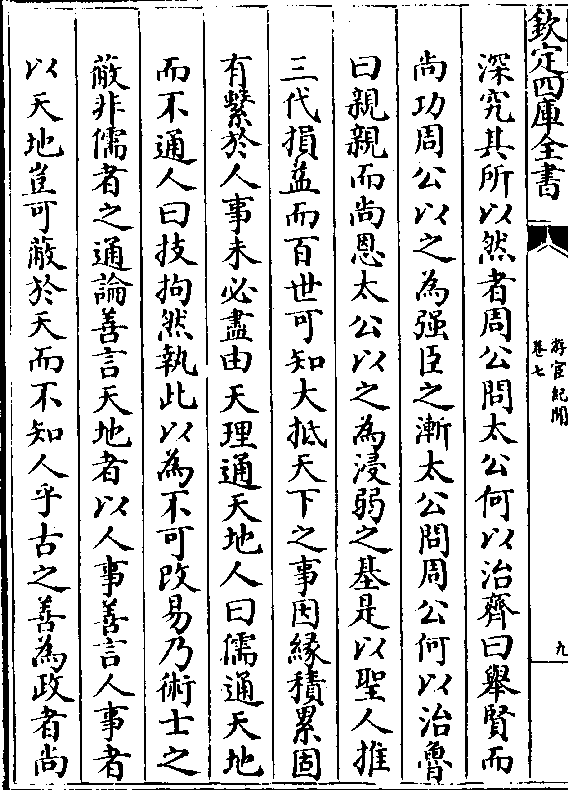 欽定四庫全書
游宦紀聞
卷七
九
深究其所以然者周公問太公何以治齊曰舉賢而
尚功周公以之為强臣之漸太公問周公何以治魯
曰親親而尚恩太公以之為浸弱之基是以聖人推
三代損益而百世可知大抵天下之事因緣積累固
有繫於人事未必盡由天理通天地人曰儒通天地
而不通人曰技拘然執此以為不可改易乃術士之
蔽非儒者之通論善言天地者以人事善言人事者
以天地豈可蔽於天而不知人乎古之善為政者尚